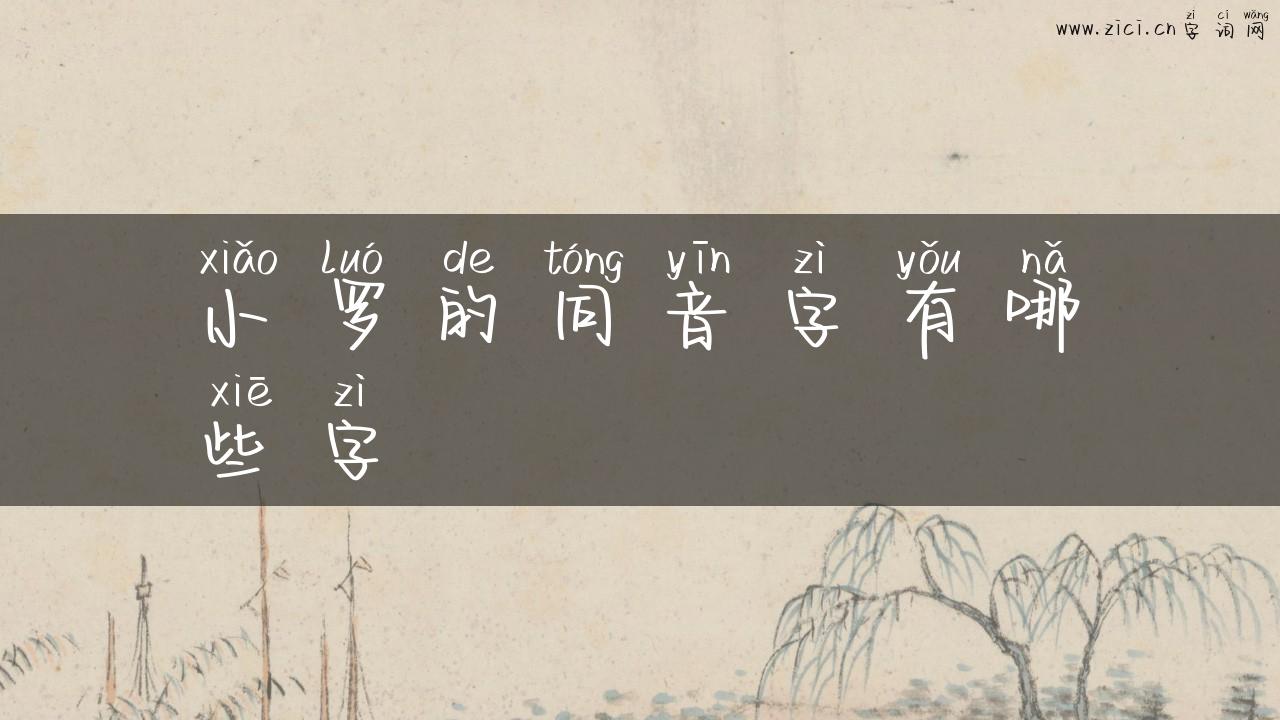 zì cí wǎng
www.zici.cn 字 词 网
xiǎo luó de tóng yīn zì yǒu nǎ
小 罗 的 同 音 字 有 哪
xiē zì
些 字